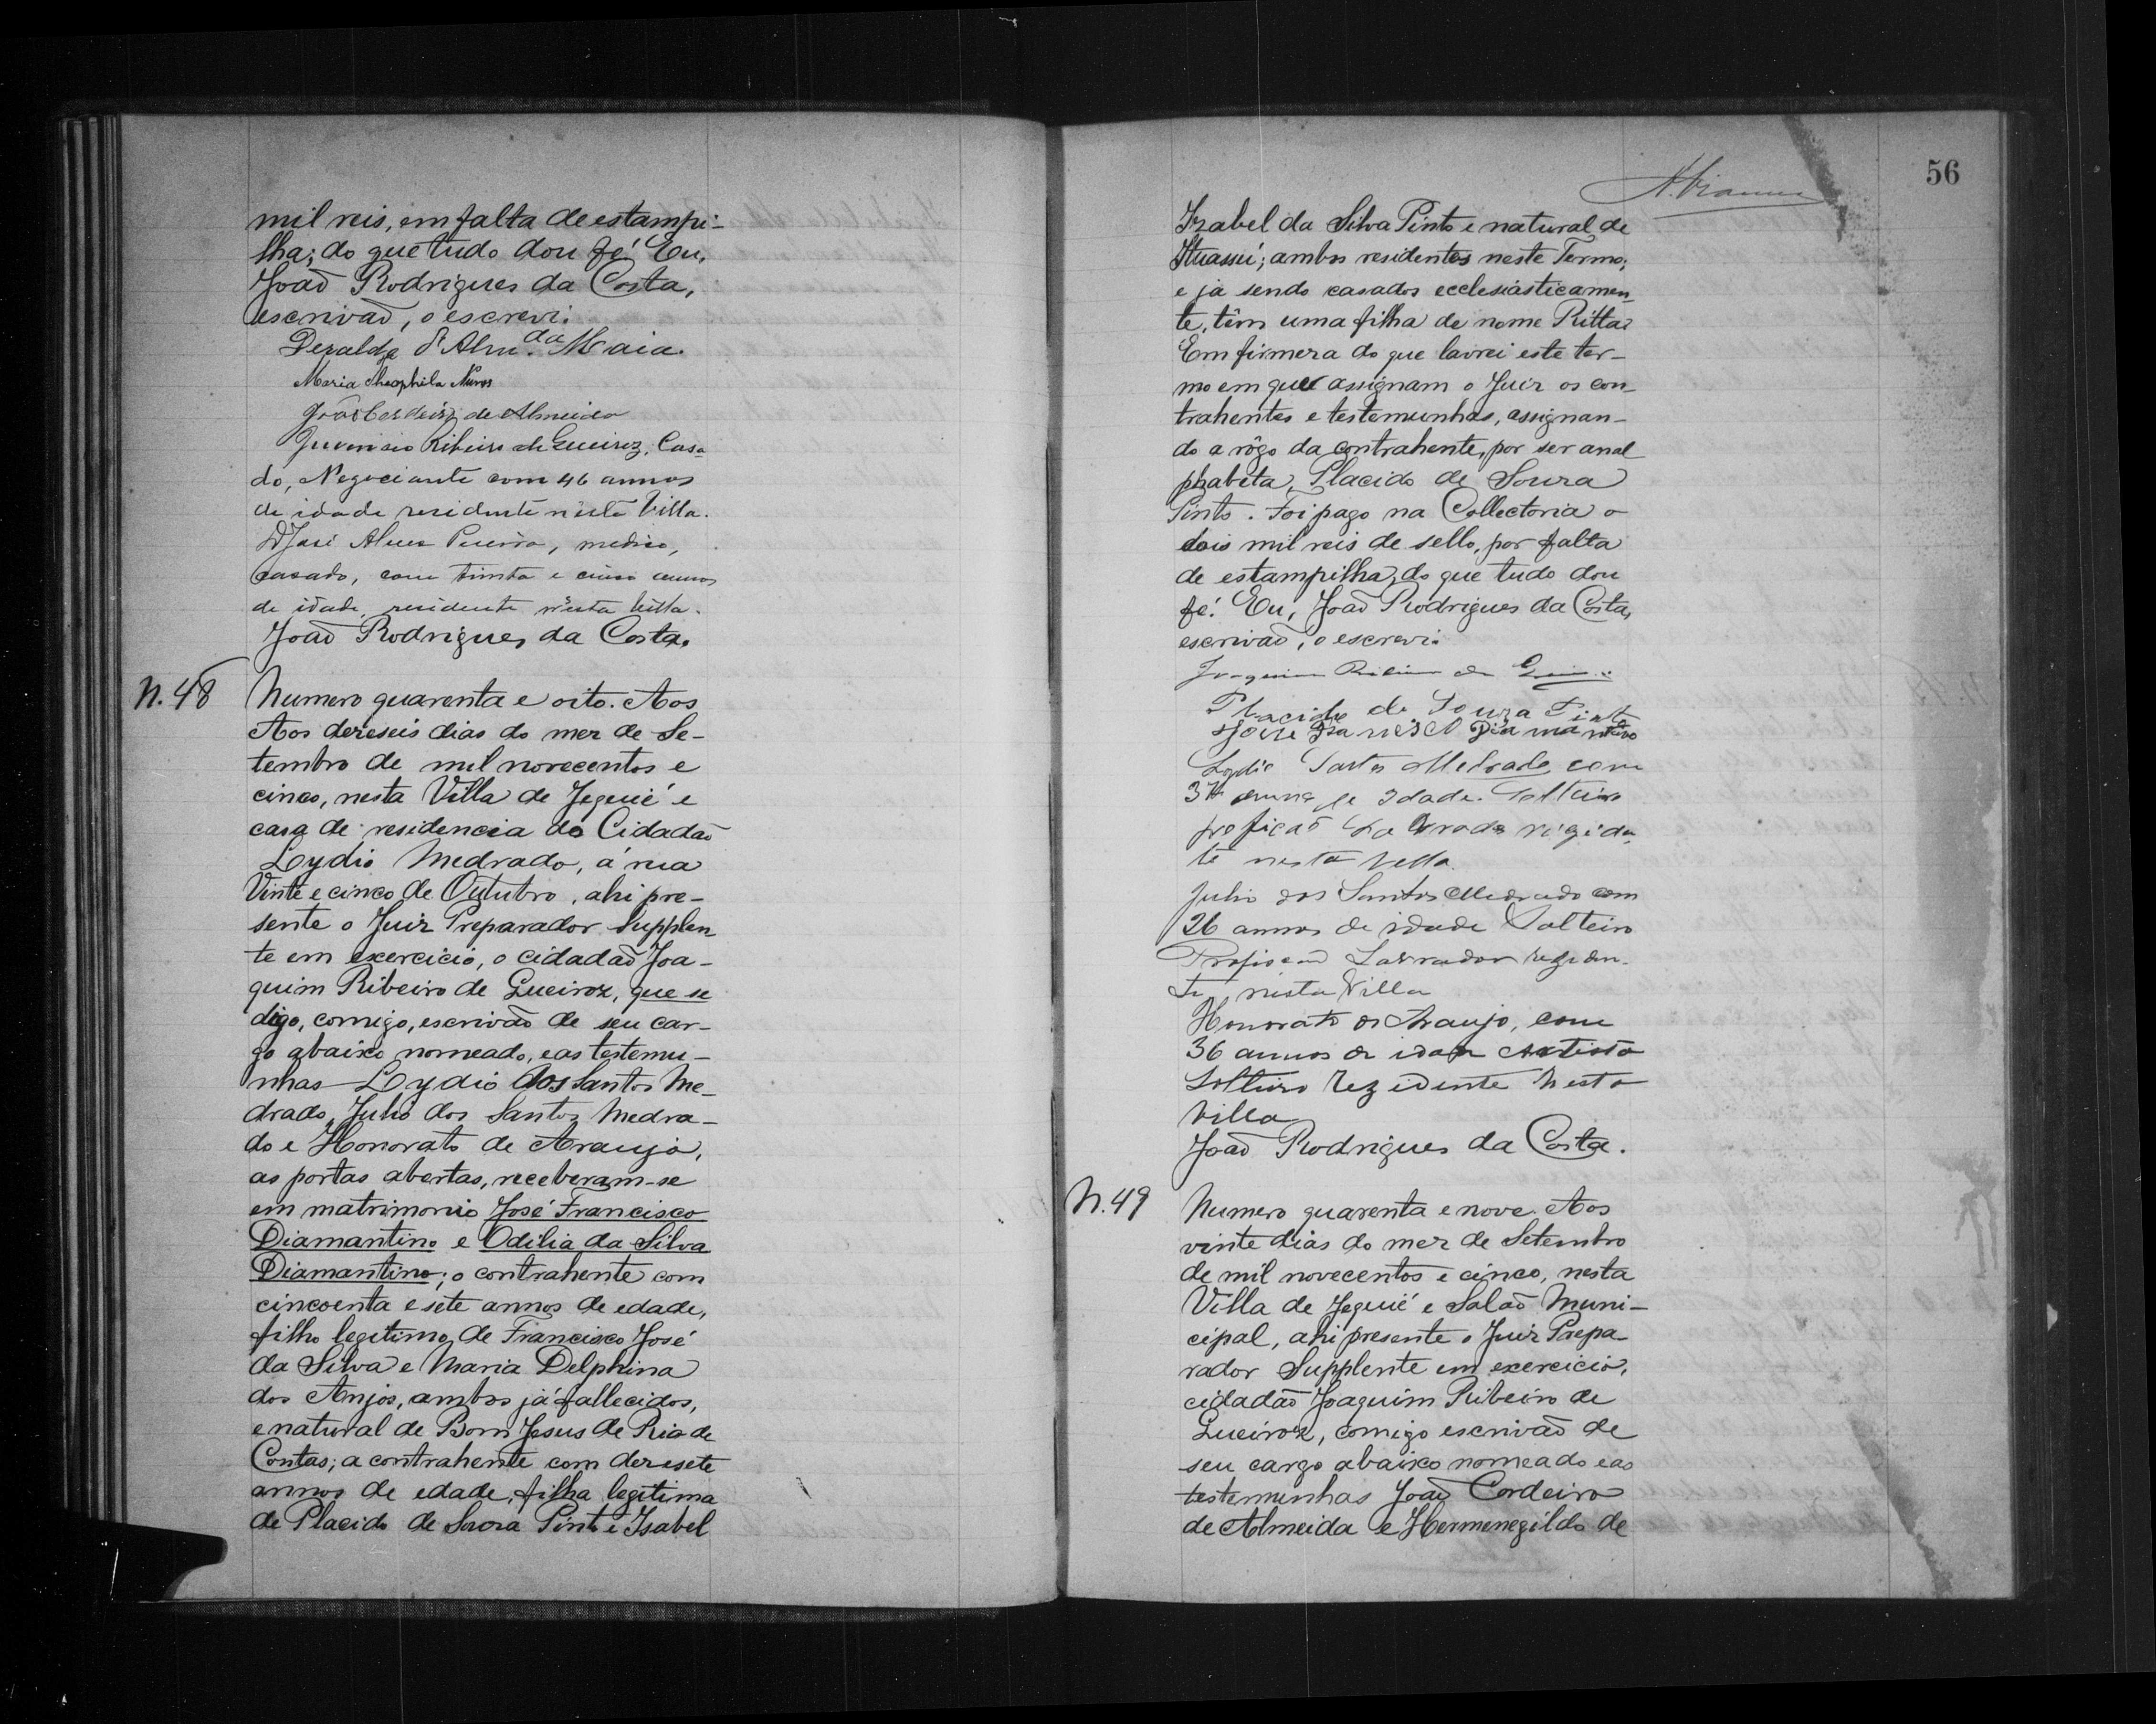 mil reis, em falta de estampi-
lha; do que tudo dou fé. Eu,
João Rodrigues da Costa,
escrivão, o escrevi.
Deralda d'Almda Maia.
Maria Theophila Nunes
João Cordeiro de Almeida
Juvencio Ribeiro de Queiroz, Casa
do, Negociante com 46 annos
de idade residente nesta Villa.
Dr José Alves Pereira, medico,
casado, com trinta e cinco annos
de idade, residente n'esta villa.
João Rodrigues da Costa.
N. 48
Numero quarenta e oito. Aos
Aos deseseis dias do mez de Se-
tembro de mil novecentos e
cinco, nesta Villa de Jequié e
casa de residencia do Cidadão
Lydio Medrado, á rua
Vinte e cinco de Outubro, ahi pre-
sente o Juiz Preparador Supplen
te em exercicio, o cidadão Joa-
quim Ribeiro de Queiroz, que se
digo, comigo, escrivão de seu car-
go abaixo nomeado, e as testemu-
nhas Lydio dos Santos Me-
drado, Julio dos Santos Medra-
do e Honorato de Araujo,
as portas abertas, receberam-se
em matrimonio José Francisco
Diamantino e Odilia da Silva
Diamantino; o contrahente com
cincoenta e sete annos de edade,
filho legitimo de Francisco José
da Silva e Maria Delphina
dos Anjos, ambos já fallecidos,
e natural de Bom Jesus de Rio de
Contas; a contrahente com desesete
annos de edade, filha legitima
de Placido de Souza Pinto e Isabel
56
A. Vianna
Izabel da Silva Pinto e natural de
Ituassú; ambos residentes neste Termo;
e já sendo casados ecclesiasticamen
te, têm uma filha de nome Ritta.
Em firmeza do que lavrei este ter-
mo em que assignam o Juiz os con-
trahentes e testemunhas, assignan-
do a rôgo da contrahente, por ser anal
phabeta, Placido de Souza
Pinto. Foi pago na Collectoria o
dois mil reis de sello, por falta
de estampilha, do que tudo dou
fé. Eu, João Rodrigues da Costa,
escrivão, o escrevi.
Joaquim Ribeiro de
Placido de Souza Pinto
José Diamantino
Lydio Medrado com
annos de idade. Solteiro
nesta Villa.
Julio dos Santos Medrado com
26 annos de idade Solteiro
Profisão Lavrador reziden-
te nesta Villa
Honorato de Araujo, com
36 annos de idade Artista
Solteiro rezidente nesta
Villa
João Rodrigues da Costa.
N. 49
Numero quarenta e nove. Aos
vinte dias do mez de Setembro
de mil novecentos e cinco, nesta
Villa de Jequié e Salão Muni-
cipal, ahi presente o Juiz Prepa-
rador Supplente em exercicio,
cidadão Joaquim Ribeiro de
Queiroz, comigo escrivão de
seu cargo abaixo nomeado e as
testemunhas João Cordeiro
de Almeida e Hermenegildo de